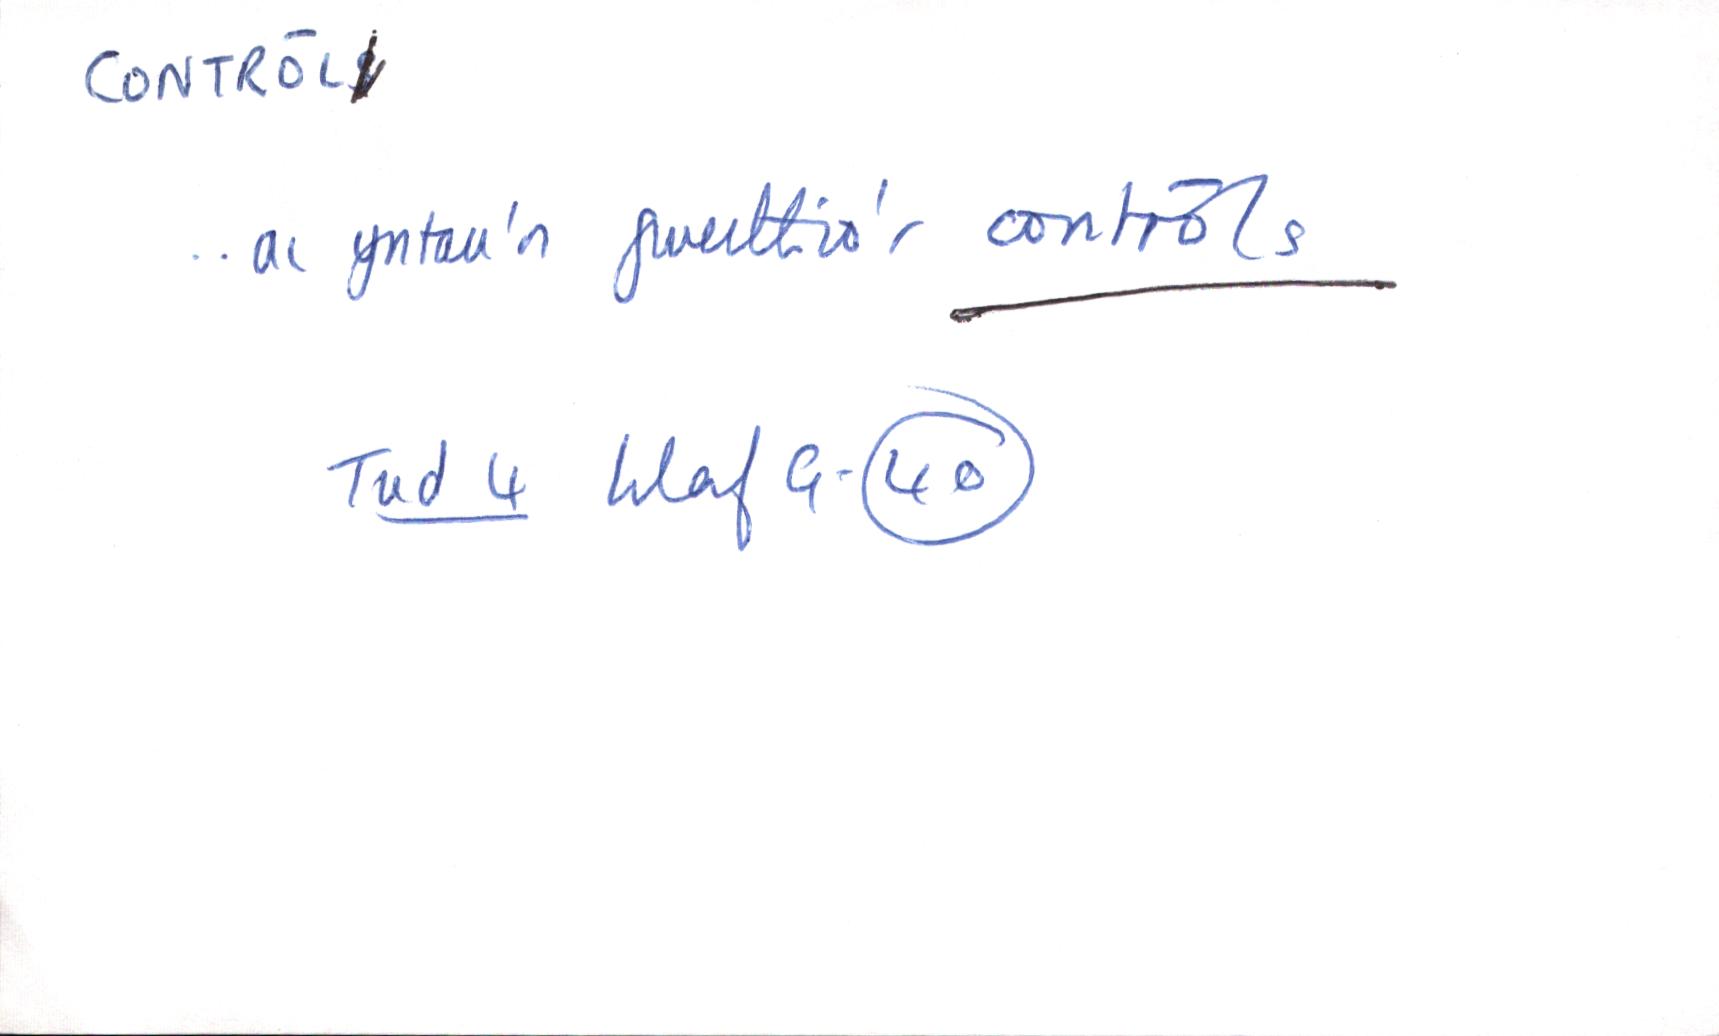 CONTRŌL
.. ac yntau'n gweithio'r contrōls
Tud 4 Llaf G-40